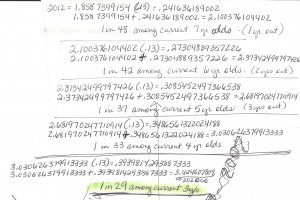 2012 = 1.8587399154 (.13) = .241636189002
1.8587399154 + .241636189002 = 2.100376104402
1 in 48 among current 7 yo olds. (1 yr out)
2.100376104402 (.13) = .27304889357226
2.100376104402 + .27304889357226 = 2.37342499797426
1 in 42 among current 6 yr olds. (2 yrs out)
2.37342499797426 (.13) = .3085452497366538
2.37342499797426 + .3085452497366538 = 2.6819702477109
1 in 37 among current 5 yr olds (3 yrs out)
2.68197024771091 4 (.13) = .348656132202418
2.68197024771091 4 + .3486561322024188 = 3.030626379913333
1 in 33 among current 4 yr olds
3.030626379913333 (.13) = .3939814293887333
3.030626379913333 + .3939814293887333 = 3.42460780
1 in 29 among current 3 yo